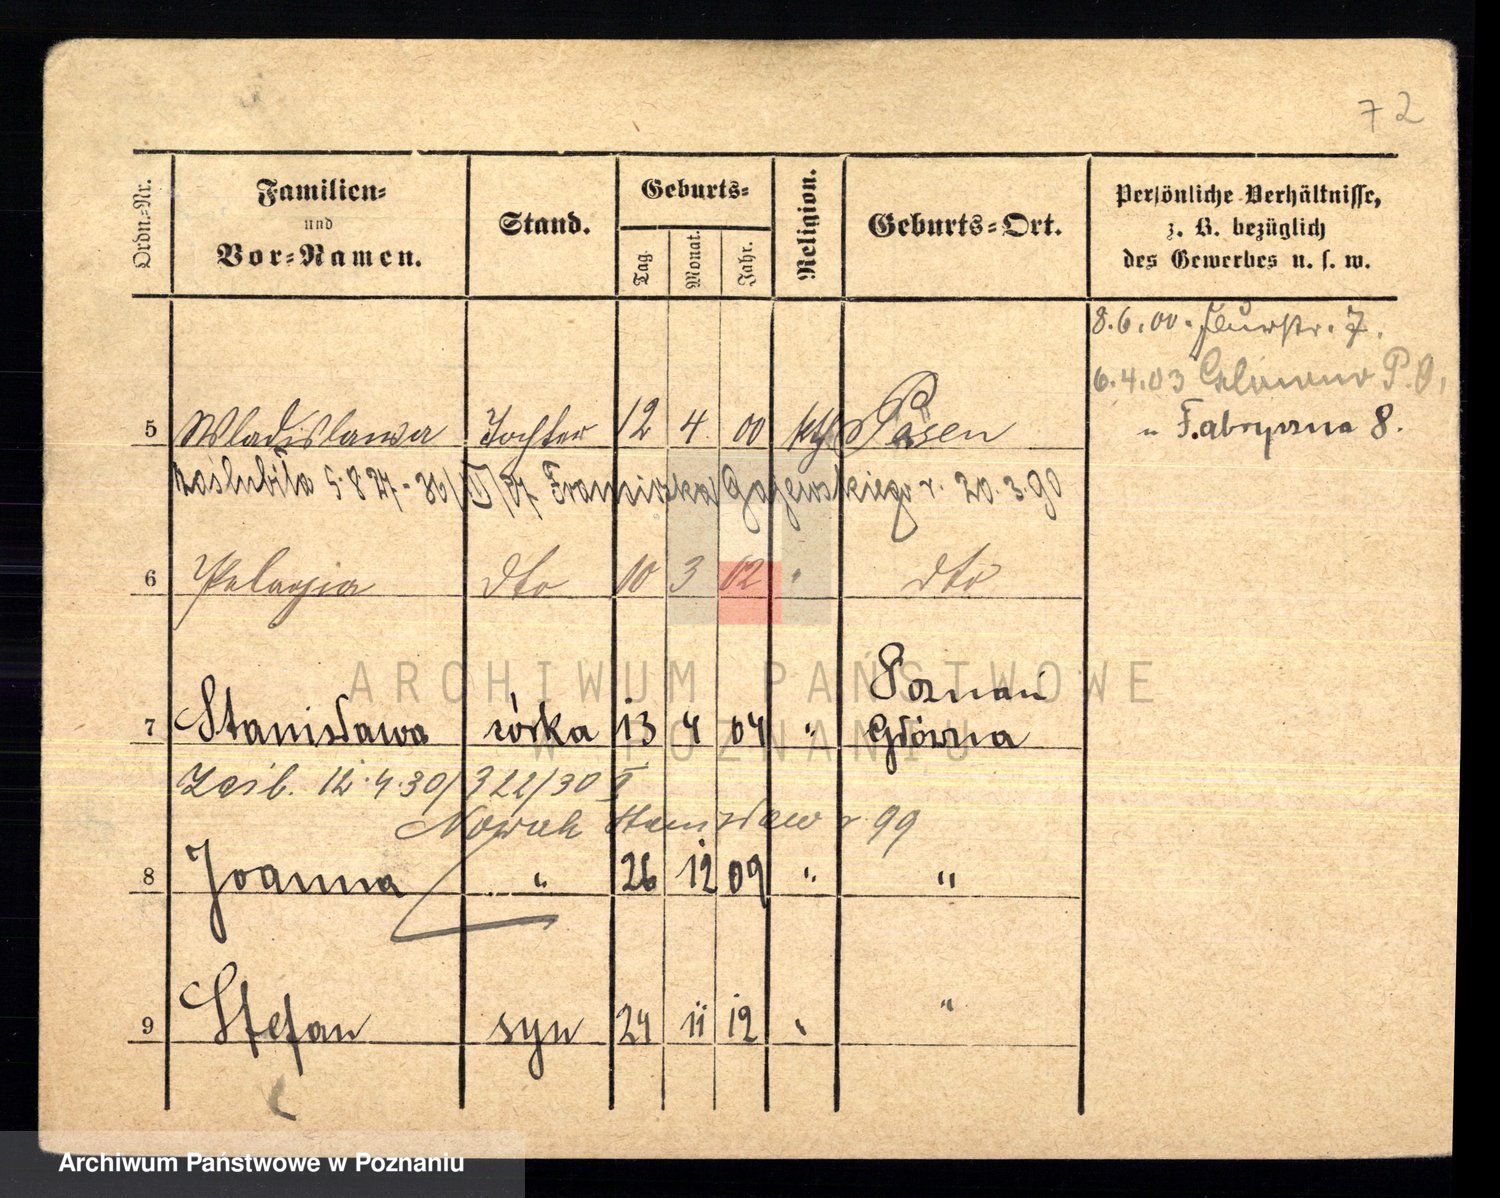 72
Ordn.-Nr.
Familien-
und
Vor-Namen.
Stand.
Geburts-
Tag.
Monat.
Jahr.
Religion.
Geburts-Ort.
Persönliche Verhältnisse,
z. B. bezüglich
des Gewerbes u. s. w.
8.6.00. Flurstr. 7.
6.4.03 Glowno P.O.
" Fabryczna 8.
5 Wladislawa Tochter 12 4. 00 kth Posen
zaślubiła 5.8.27 - Franciszka Gajewskiego r. 20.3.90
6 Pelagia dto 10 3 02 " dto
Poznań
7 Stanisława córka 13 4 04 " Główna
Zaśl. 12.4.30/322/30 I
Nowak Stanisław r. 99
8 Joanna " 26 12 09 " "
9 Stefan syn 24 11 12 " "
ARCHIWUM PAŃSTWOWE
W POZNANIU
Archiwum Państwowe w Poznaniu